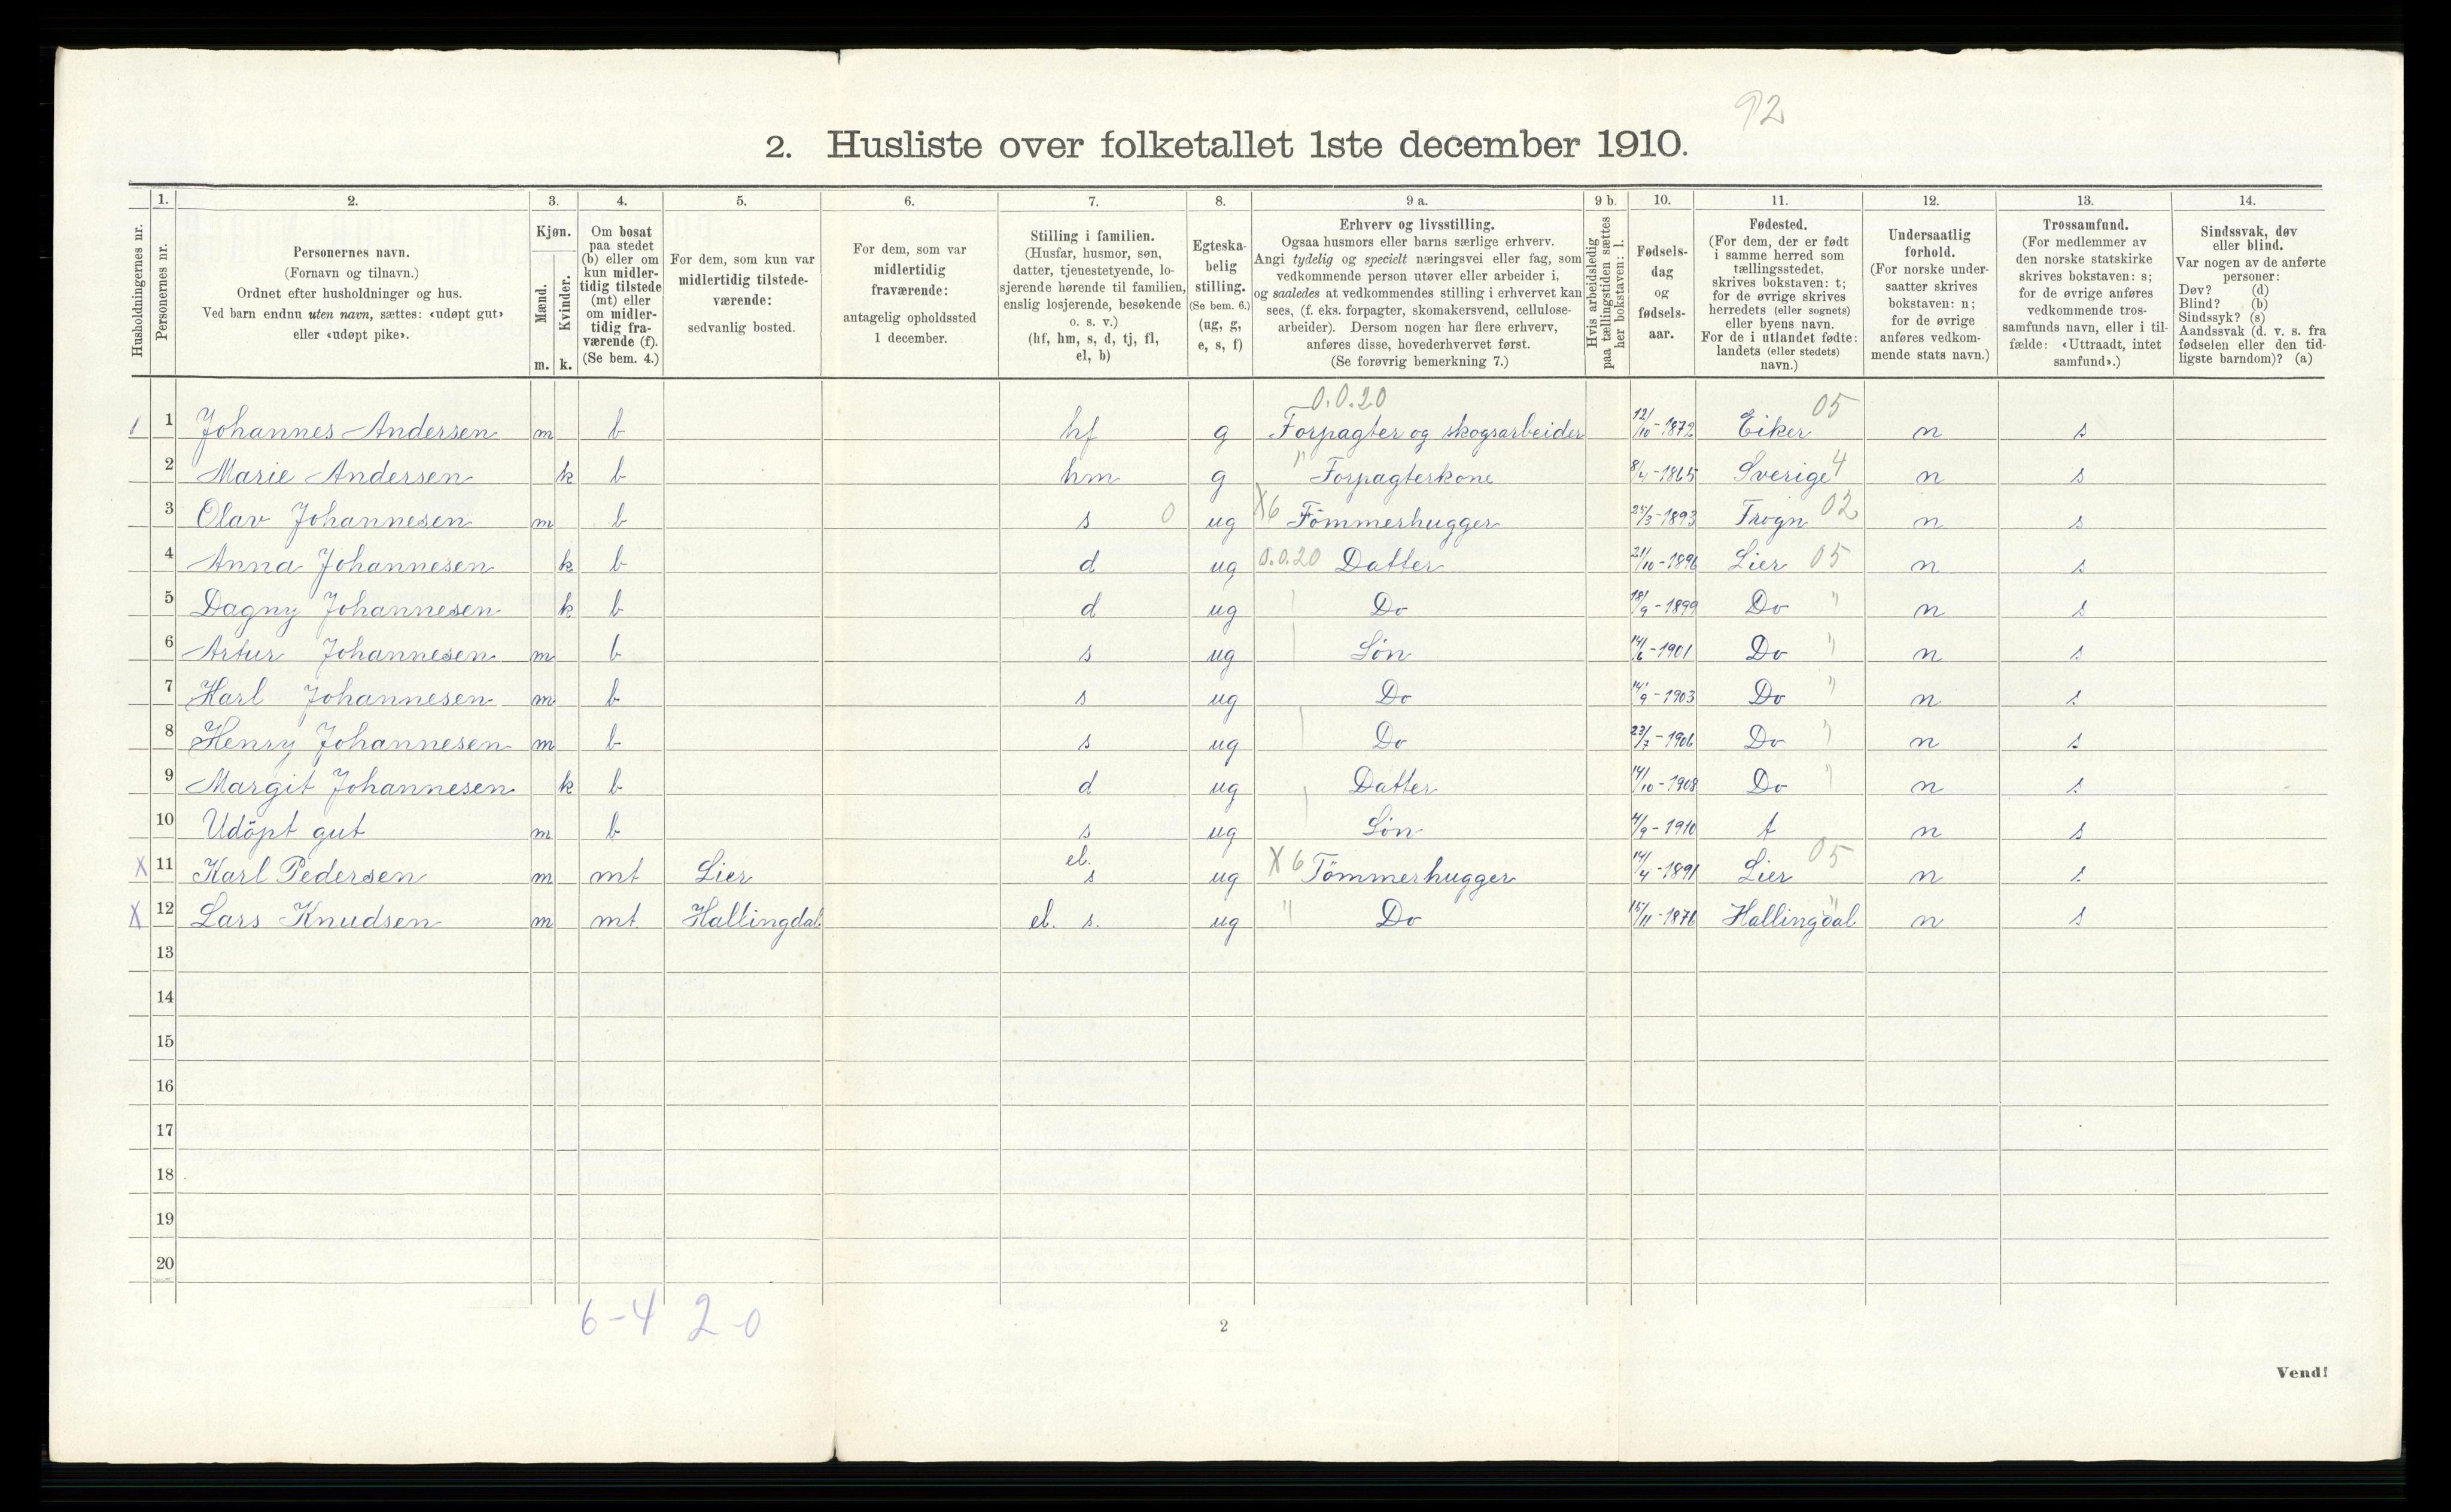 92
2. Husliste over folketallet 1ste december 1910.
Husholdningernes nr.
1. Personernes nr.
2. Personernes navn. (Fornavn og tilnavn.) Ordnet efter husholdninger og hus. Ved barn endnu uten navn, sættes: «udøpt gut» eller «udøpt pike».
3. Kjøn. Mænd. m. Kvinder. k.
4. Om bosat paa stedet (b) eller om kun midlertidig tilstede (mt) eller om midlertidig fraværende (f). (Se bem. 4.)
5. For dem, som kun var midlertidig tilstedeværende: sedvanlig bosted.
6. For dem, som var midlertidig fraværende: antagelig opholdssted 1 december.
7. Stilling i familien. (Husfar, husmor, søn, datter, tjenestetyende, losjerende hørende til familien, enslig losjerende, besøkende o. s. v.) (hf, hm, s, d, tj, fl, el, b)
8. Egteskabelig stilling. (Se bem. 6.) (ug, g, e, s, f)
9 a. Erhverv og livsstilling. Ogsaa husmors eller barns særlige erhverv. Angi tydelig og specielt næringsvei eller fag, som vedkommende person utøver eller arbeider i, og saaledes at vedkommendes stilling i erhvervet kan sees, (f. eks. forpagter, skomakersvend, cellulosearbeider). Dersom nogen har flere erhverv, anføres disse, hovederhvervet først. (Se forøvrig bemerkning 7.)
9 b. Hvis arbeidsledig paa tællingstiden sættes her bokstaven: l.
10. Fødselsdag og fødselsaar.
11. Fødested. (For dem, der er født i samme herred som tællingsstedet, skrives bokstaven: t; for de øvrige skrives herredets (eller sognets) eller byens navn. For de i utlandet fødte: landets (eller stedets) navn.)
12. Undersaatlig forhold. (For norske undersaatter skrives bokstaven: n; for de øvrige anføres vedkommende stats navn.)
13. Trossamfund. (For medlemmer av den norske statskirke skrives bokstaven: s; for de øvrige anføres vedkommende trossamfunds navn, eller i tilfælde: «Uttraadt, intet samfund».)
14. Sindssvak, døv eller blind. Var nogen av de anførte personer: Døv? (d) Blind? (b) Sindssyk? (s) Aandssvak (d. v. s. fra fødselen eller den tidligste barndom)? (a)
0.0.20 05
1 1 Johannes Andersen m b hf g Forpagter og skogsarbeider 12/10-1872 Eiker n s
2 Marie Andersen k b hm g " Forpagterkone 8/4-1865 Sverige 4 n s
3 Olav Johannesen m b s 0 ug X6 Tömmerhugger 25/3-1893 Frogn 02 n s
4 Anna Johannesen k b d ug 0.0.20 Datter 21/10-1896 Lier 05 n s
5 Dagny Johannesen k b d ug Do 18/9-1899 Do " n s
6 Artur Johannesen m b s ug Sön 14/6-1901 Do " n s
7 Karl Johannesen m b s ug Do 14/9-1903 Do " n s
8 Henry Johannesen m b s ug Do 23/7-1906 Do " n s
9 Margit Johannesen k b d ug Datter 14/10-1908 Do " n s
10 Udöpt gut m b s ug Sön 4/9-1910 t n s
X 11 Karl Pedersen m mt Lier el. s ug X 6 Tömmerhugger 14/4-1891 Lier 05 n s
X 12 Lars Knudsen m mt Hallingdal el. s. ug " Do 15/11-1876 Hallingdal " n s
13
14
15
16
17
18
19
20
6-4 2-0
2
Vend!